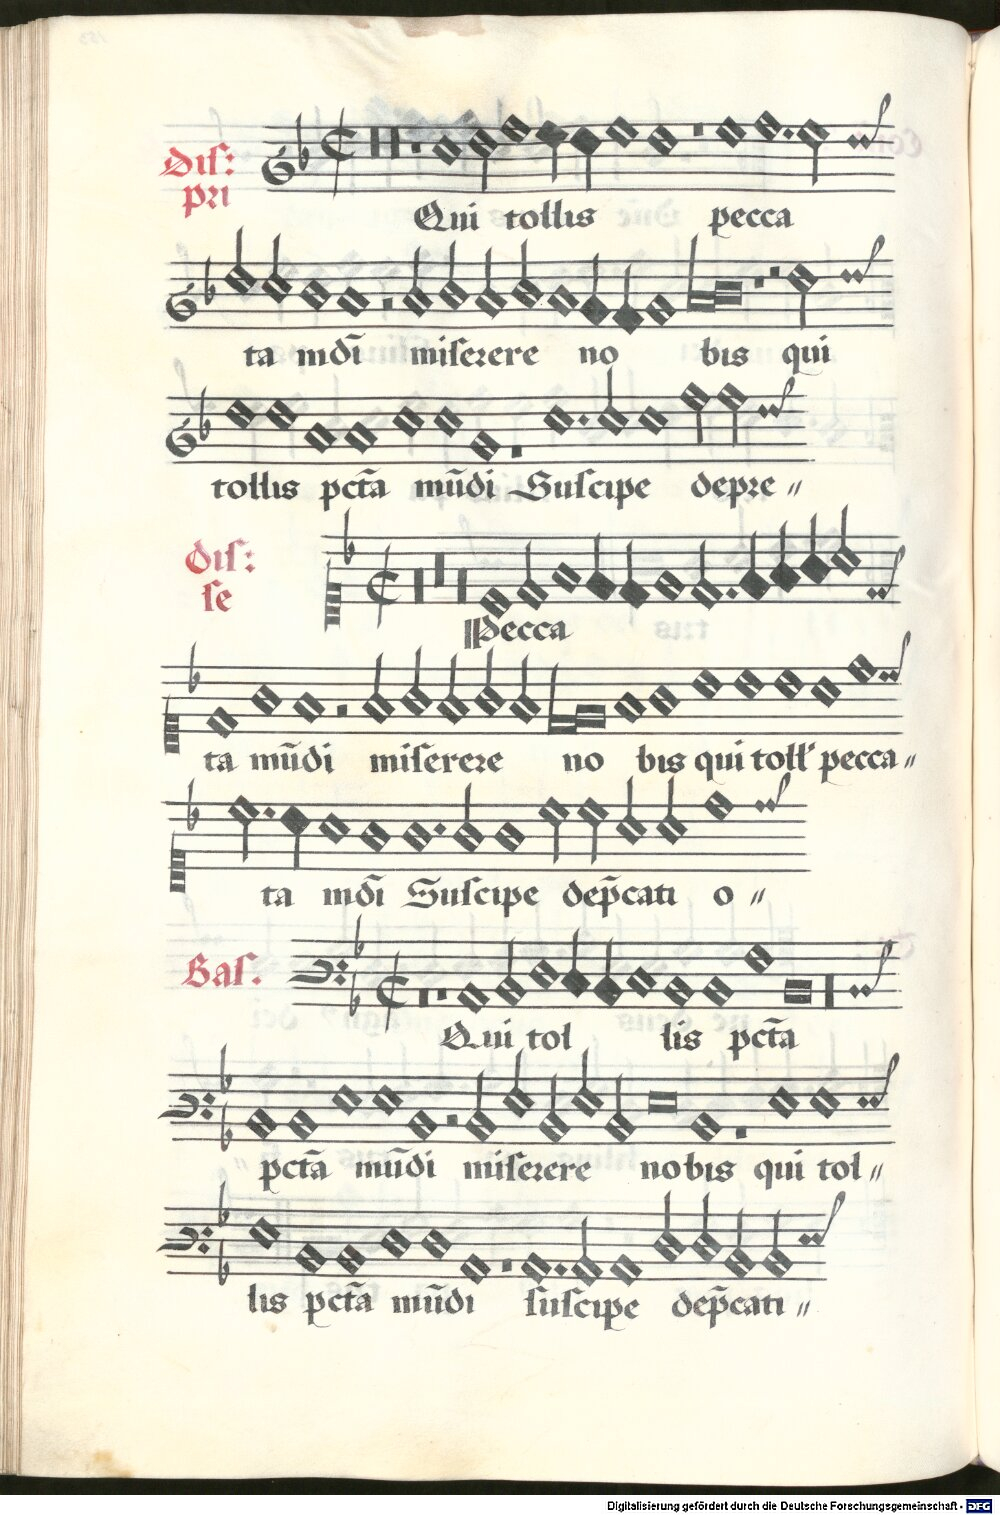 Dis:
pri
Qui tollis pecca
ta mdi̅ miserere no bis qui
tollis pct̅a mu̅di Suscipe depre〃
Dis:
se
Pecca
ta mu̅di miserere no bis qui toll' pecca〃
ta mdi̅ Suscipe dep̅cati o〃
Bas.
Qui tol lis pct̅a
pct̅a mu̅di miserere nobis qui tol〃
lis pct̅a mu̅di suscipe dep̅cati〃
Digitalisierung gefördert durch die Deutsche Forschungsgemeinschaft - DFG